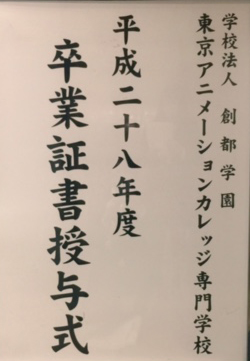 学校法人 創都学園
東京アニメーションカレッジ専門学校
平成二十八年度
卒業証書授与式